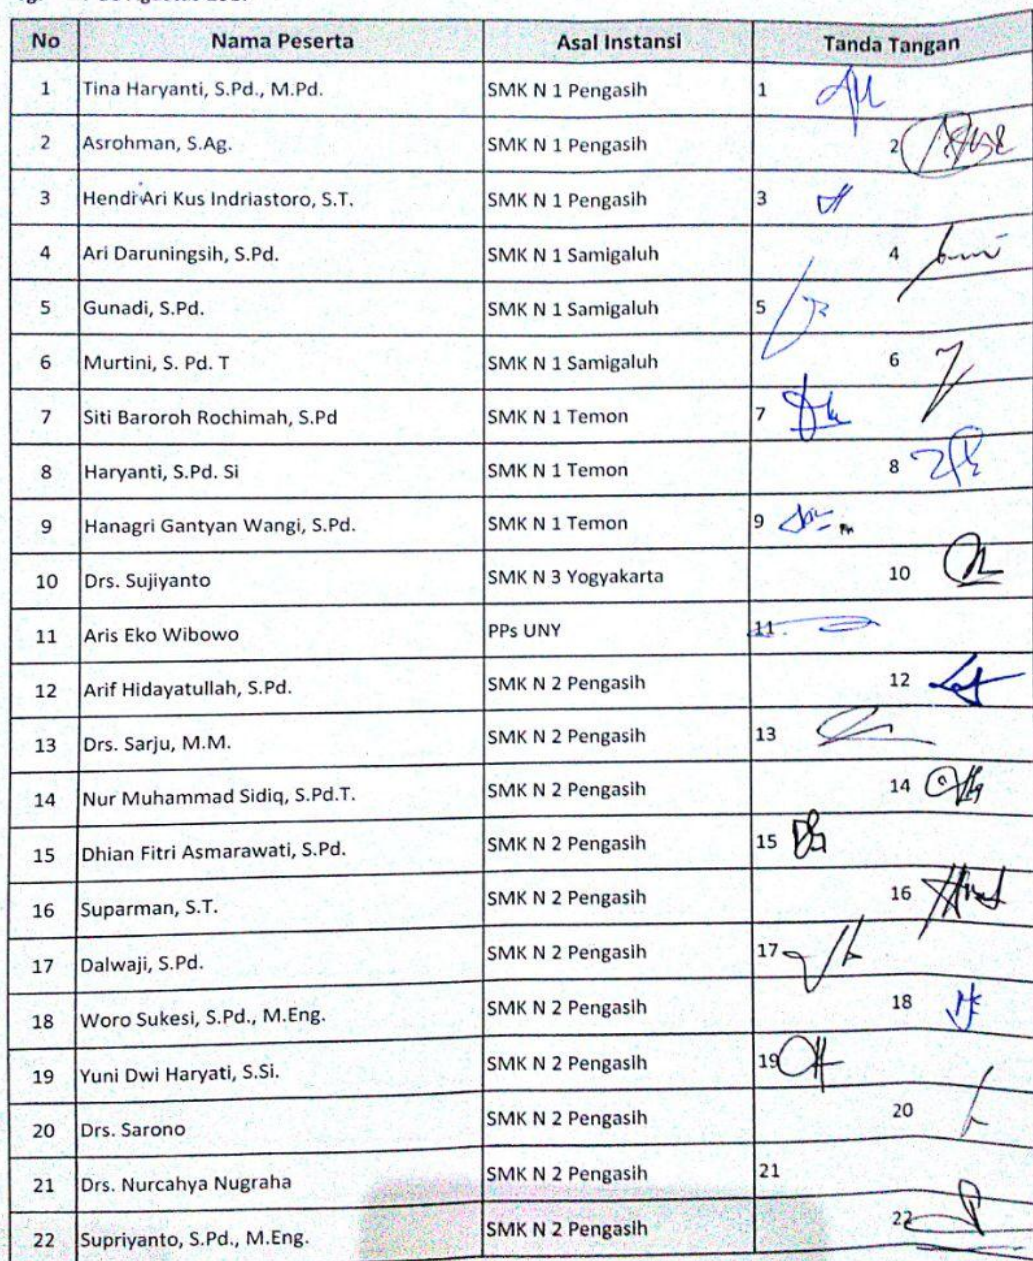 No Nama Peserta Asal Instansi Tanda Tangan
1 Tina Haryanti, S.Pd., M.Pd. SMK N 1 Pengasih 1
2 Asrohman, S.Ag. SMK N 1 Pengasih 2
3 Hendi Ari Kus Indriastoro, S.T. SMK N 1 Pengasih 3
4 Ari Daruningsih, S.Pd. SMK N 1 Samigaluh 4
5 Gunadi, S.Pd. SMK N 1 Samigaluh 5
6 Murtini, S. Pd. T SMK N 1 Samigaluh 6
7 Siti Baroroh Rochimah, S.Pd SMK N 1 Temon 7
8 Haryanti, S.Pd. Si SMK N 1 Temon 8
9 Hanagri Gantyan Wangi, S.Pd. SMK N 1 Temon 9
10 Drs. Sujiyanto SMK N 3 Yogyakarta 10
11 Aris Eko Wibowo PPs UNY 11
12 Arif Hidayatullah, S.Pd. SMK N 2 Pengasih 12
13 Drs. Sarju, M.M. SMK N 2 Pengasih 13
14 Nur Muhammad Sidiq, S.Pd.T. SMK N 2 Pengasih 14
15 Dhian Fitri Asmarawati, S.Pd. SMK N 2 Pengasih 15
16 Suparman, S.T. SMK N 2 Pengasih 16
17 Dalwaji, S.Pd. SMK N 2 Pengasih 17
18 Woro Sukesi, S.Pd., M.Eng. SMK N 2 Pengasih 18
19 Yuni Dwi Haryati, S.Si. SMK N 2 Pengasih 19
20 Drs. Sarono SMK N 2 Pengasih 20
21 Drs. Nurcahya Nugraha SMK N 2 Pengasih 21
22 Supriyanto, S.Pd., M.Eng. SMK N 2 Pengasih 22